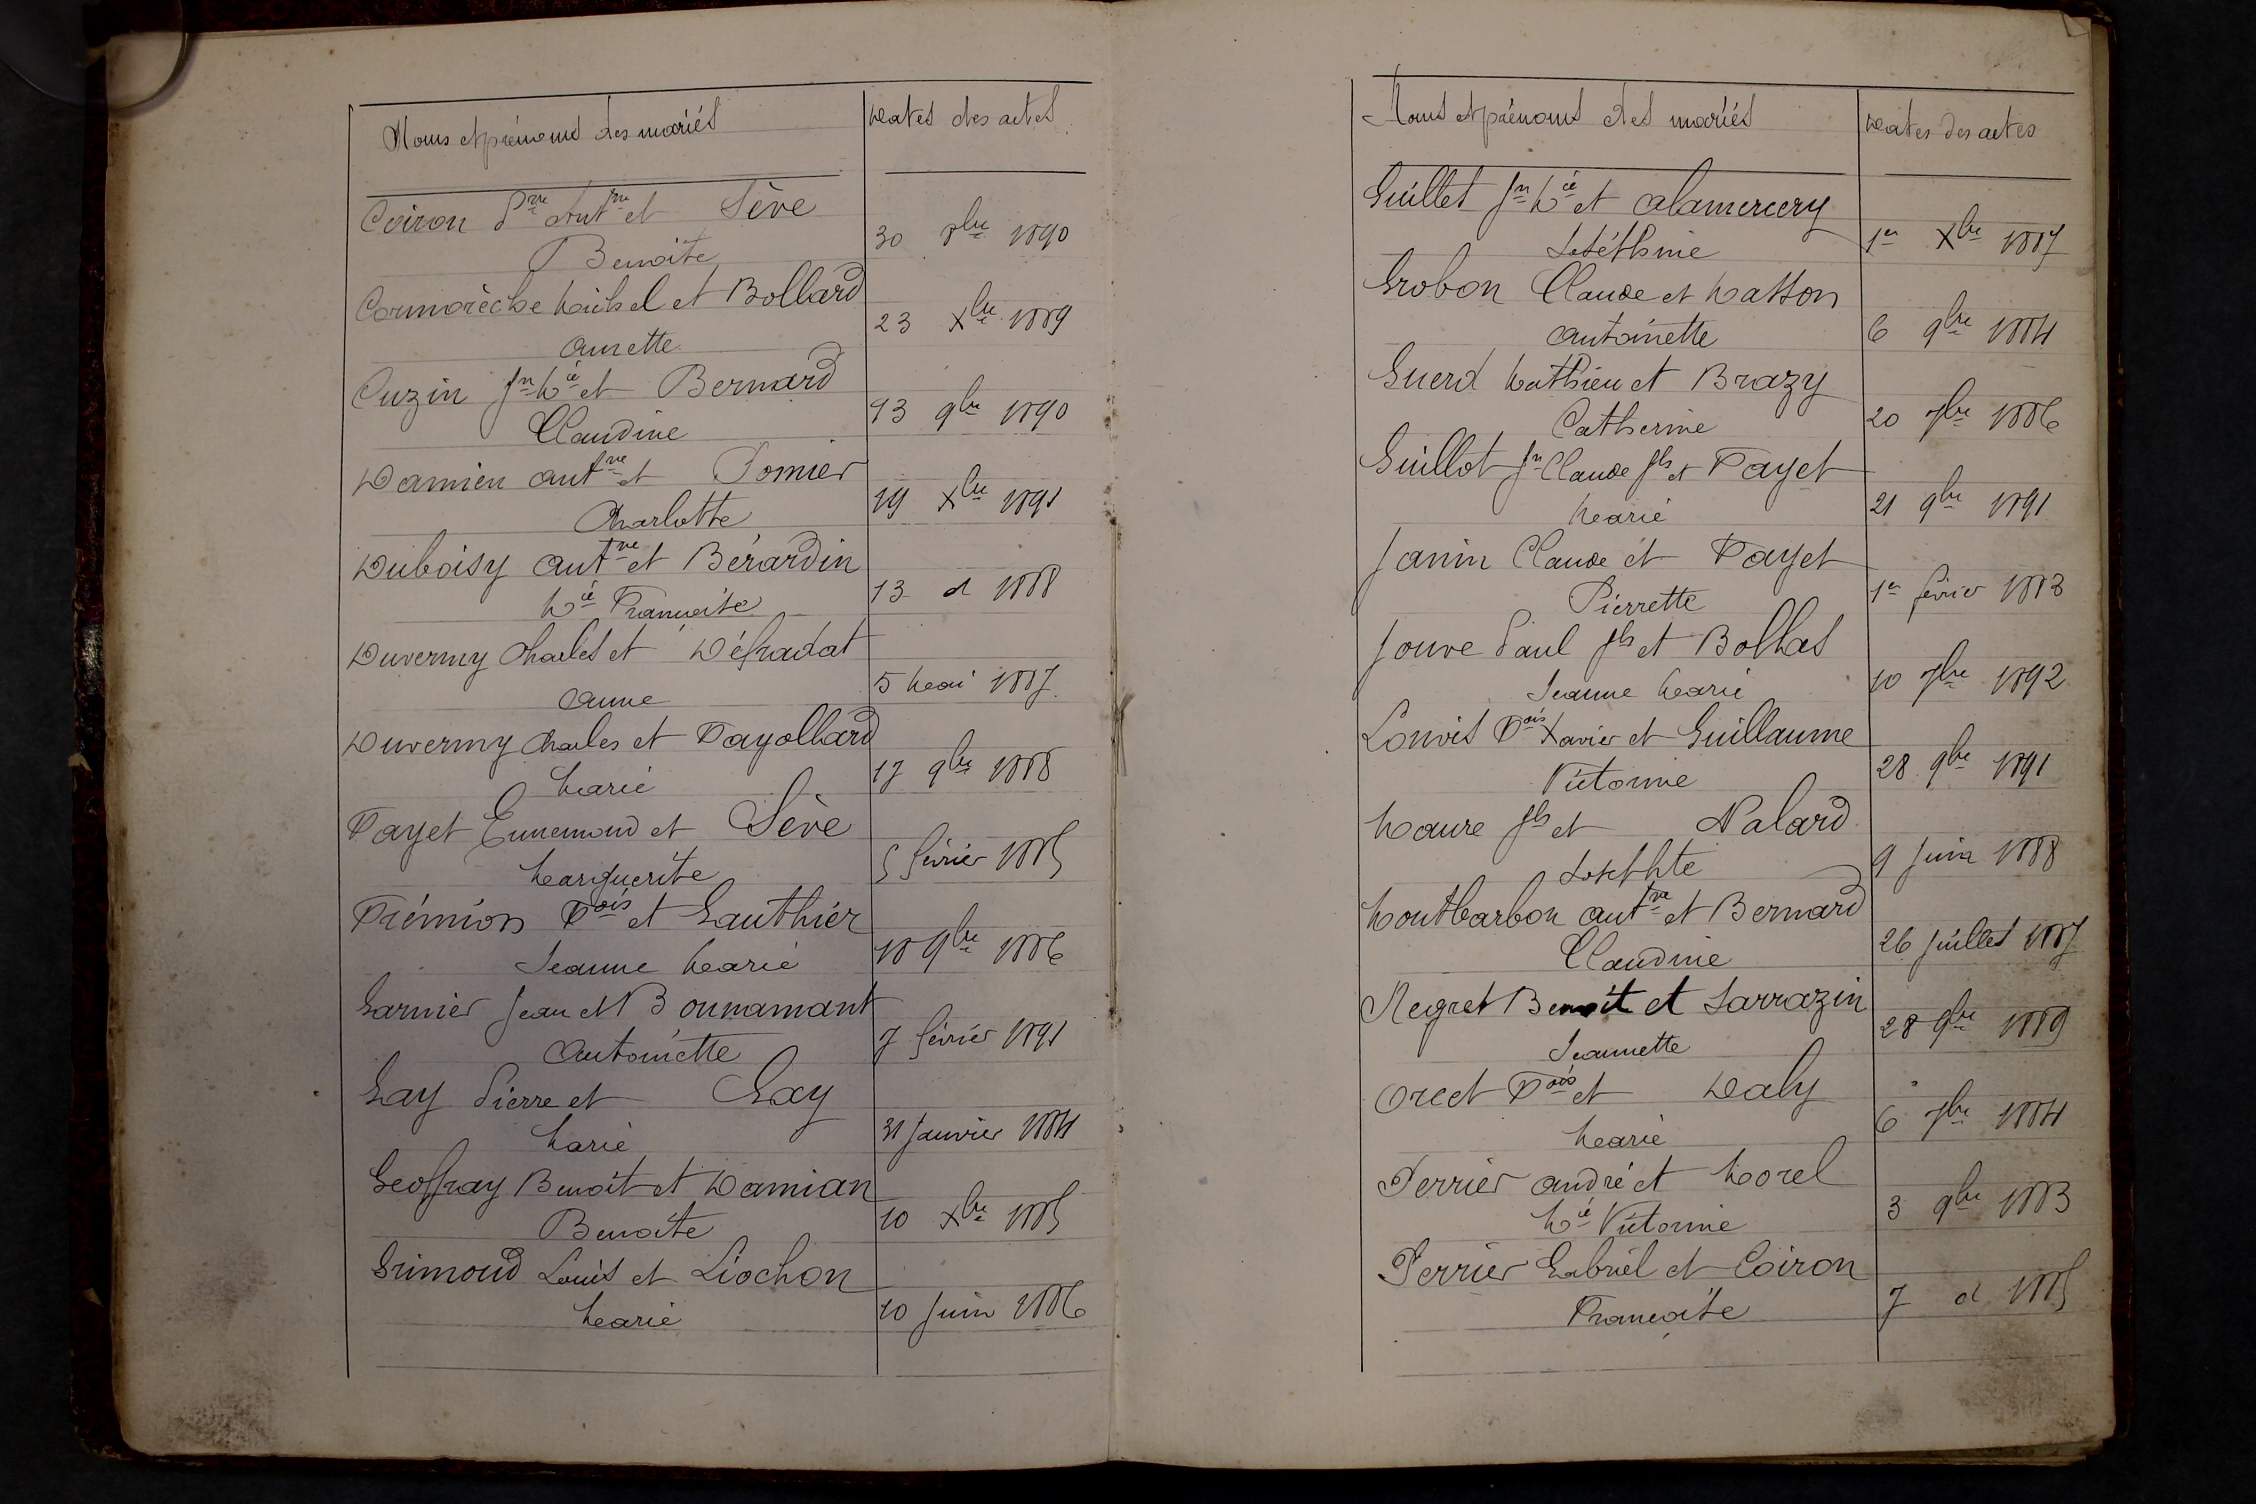 Noms et prénoms des mariés
Dates des actes
Coiron Pre Antne et Sève
Benoite
30 8bre 1890
Cormorèche Michel et Bollard
Annette
23 Xbre 1889
Cuzin Jn Mie et Bernard
Claudine
13 9bre 1890
Damien Antne et Pomier
Charlotte
19 Xbre 1891
Duboisy Antne et Bérardin
Mie Françoise
13 d 1888
Duvermy Charles et Défradat
Anne
5 Mai 1887
Duvermy Charles et Fayollard
Marie
17 9bre 1888
Fayet Ennemond et Sève
Marguerite
5 février 1885
Frémion Fois et Gauthier
Jeanne Marie
18 9bre 1886
Garnier Jean et Bonnamant
Antoinette
7 février 1891
Gay Pierre et Gay
Marie
31 Janvier 1884
Geoffray Benoit et Damian
Benoite
10 Xbre 1885
Grimoud Louis et Liochon
Marie
10 Juin 1886
Noms et prénoms des mariés
Dates des actes
Guillet Jn Mie et Alamercery
Joséphine
1er Xbre 1887
Grobon Claude et Masson
Antoinette
6 9bre 1884
Guerd Mathieu et Brazy
Catherine
20 7bre 1886
Guillot Jn Claude fls et Fayet
Marie
21 9bre 1891
Janin Claude et Fayet
Pierrette
1er février 1883
Jouve Paul fls et Bolhas
Jeanne Marie
10 7bre 1892
Louvis Fois Xavier et Guillaume
Victorine
28 9bre 1891
Maure fls et Nalard
Josephte
9 Juin 1888
Montbarbon Antne et Bernard
Claudine
26 Juillet 1887
Negret Benoit et Sarrazin
Jeannette
28 9bre 1889
Orcet Fois et Daly
Marie
6 7bre 1884
Perrier André et Morel
Mie Victorine
3 9bre 1883
Perrier Gabriel et Coiron
Françoise
7 d 1885